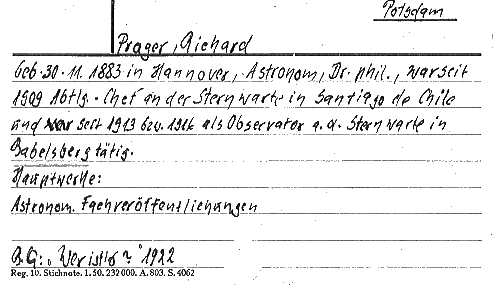 Potsdam
Prager, Richard
Geb. 30. 11. 1883 in Hannover, Astronom, Dr. phil., war seit
1909 Abtlg.-Chef an der Sternwarte in Santiago de Chile
und war seit 1913 bzw. 1916 als Observator a. d. Sternwarte in
Babelsberg tätig.
Hauptwerke:
Astronom. Fachveröffentlichungen
B.G.: „Wer ist's?" 1922
Reg. 10. Stichnote. 1. 50. 232 000. A. 803. S. 4062